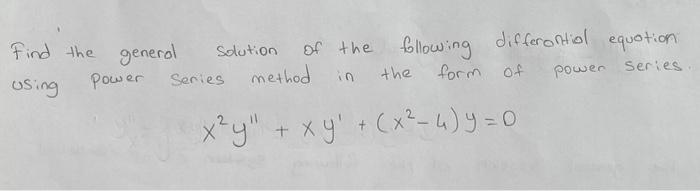 Find the general solution of the following differential equation
using power series method in the form of power series.
x²y" + xy' + (x²-4)y = 0